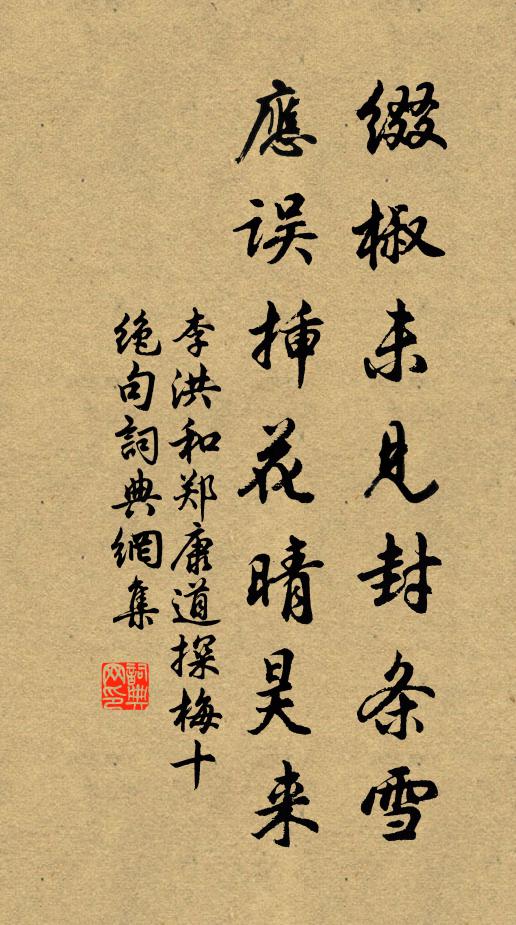 缀椒未见封条雪
應误揷花晴昊来
李洪和郑康道探梅十
绝句詞典網集
詞典
网印